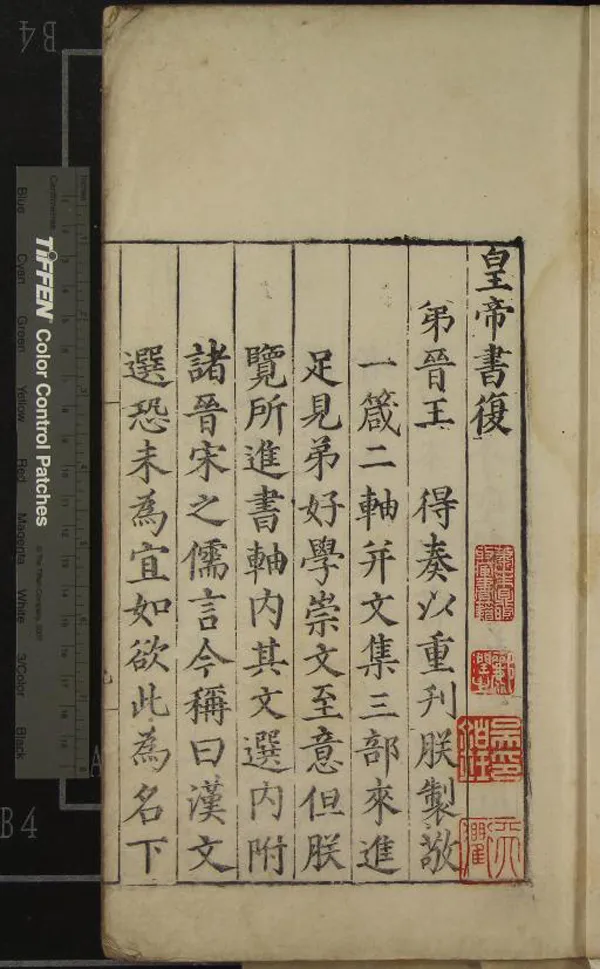 皇帝書復
弟晉王　得奏以重刋朕製敬
一箴二軸并文集三部來進
足見弟好學崇文至意但朕
覽所進書軸內其文選內附
諸晉宋之儒言今稱曰漢文
選恐未為宜如欲此為名下
B4
B4
TIFFEN Color Control Patches
© The Tiffen Company, 2007
Centimetres
Inches
Blue
Cyan
Green
Yellow
Red
Magenta
White
3/Color
Black